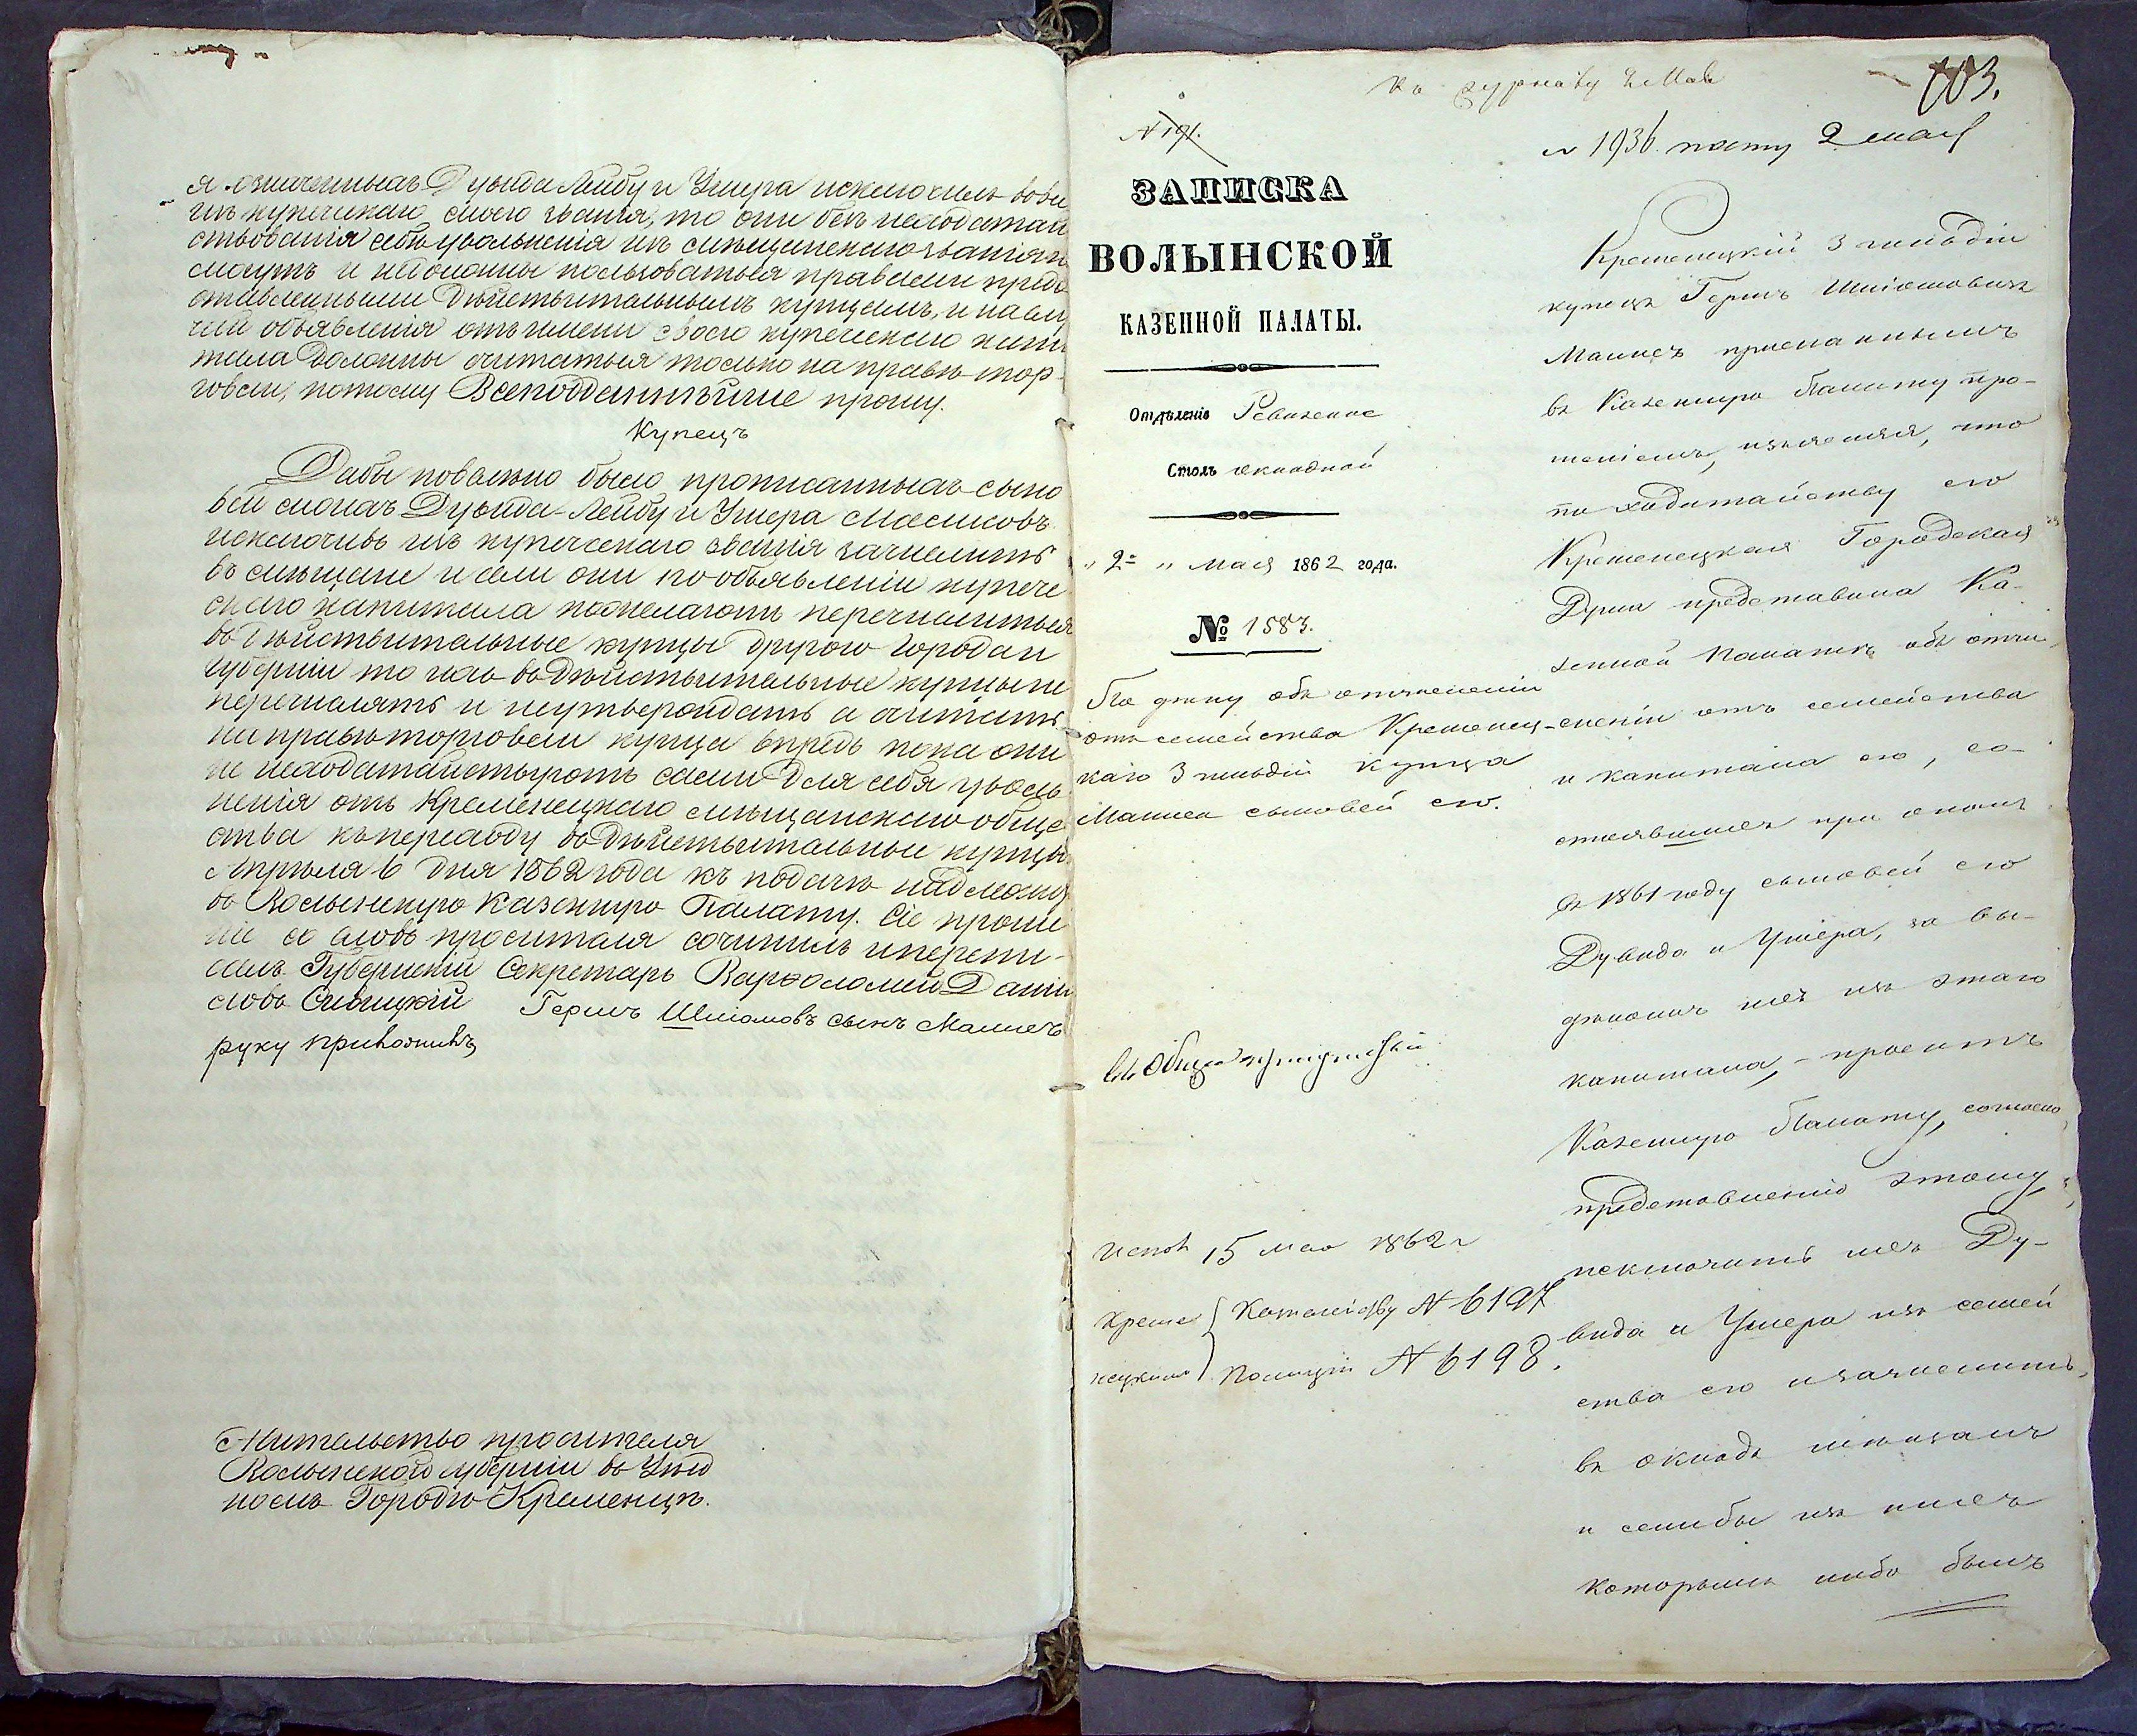 я означенныхъ Дувида Лейбу и Умера исключилъ вовсе
изъ купеческаго своего званія, то они безъ исходатай
ствованія себѣ увольненія изъ мѣщанскаго званія не
могутъ и недолжны пользоваться правами предо
ставленными Дѣйствительнымъ купцамъ, и
объявленія отъ имени своего купеческаго капи
тала должны считаться только на правѣ тор-
говли, потому Всеподданнѣйше прошу.
Купецъ
Дабы повелѣно было прописанныхъ сыно
вей моихъ Дувида-Лейбу и Умера Маемсовъ
исключивъ изъ купеческаго званія зачислить
въ мѣщане и если они по объявленіи купече
скаго капитала пожелаютъ перечислиться
въ Дѣйствительные купцы другого города и
Губерніи то ихъ въ Дѣйствительные купцы не
перечислять и неутверждать а считать
на правѣ торговли купца впредь пока они
не исходатайствуютъ сами для себя уволь
ненія отъ Кременецкаго мѣщанскаго обще
ства къ переходу въ Дѣйствительные купцы.
Апрѣля 6 дня 1862 года къ подачѣ надлежитъ
въ Волынскую Казенную Палату. Сіе проше
ніе со словъ просителя сочинилъ и перепи-
салъ Губернскій Секретарь Варфоломей Дани
ловъ Гершъ Шліомовъ сынъ
руку приложилъ
Жительство просителя
Волынской губерніи въ Уѣзд
номъ Городѣ Кременцѣ.
Къ журналу 2 Мая
№ 191.
№ 1936. пости 2 мая
ЗАПИСКА
ВОЛЫНСКОЙ
КАЗЕННОЙ ПАЛАТЫ.
Отдѣленіе Ревизское
Столъ окладной
„ 2 „ Мая 1862 года.
№ 1583.
По дѣлу объ отчисленіи
отъ семейства Кременец-
каго 3 гильдіи купца
сыновей его.
Испол 15 мая 1862 г
Креме Казначейству № 6197
нецкимъ Полиціи № 6198.
Кременецкій 3 гильдіи
купецъ Гершъ Шліомовичъ
присланнымъ
въ Казенную Палату про-
шеніемъ, изъясняя, что
по ходатайству его
Кременецкая Городская
Дума представила Ка-
зенной Палатѣ объ отчи
сленіи отъ семейства
и капитала его, со-
стоявшихъ при ономъ
въ 1861 году сыновей его
Дувида и Умера, за вы-
дѣломъ ихъ изъ этаго
капитала, - проситъ
Казенную Палату, согласно
представленію этому,
исключить ихъ Ду-
вида и Умера изъ семей
ства его и зачислить
въ окладъ мѣщанъ
и если бы изъ нихъ
которымъ либо былъ